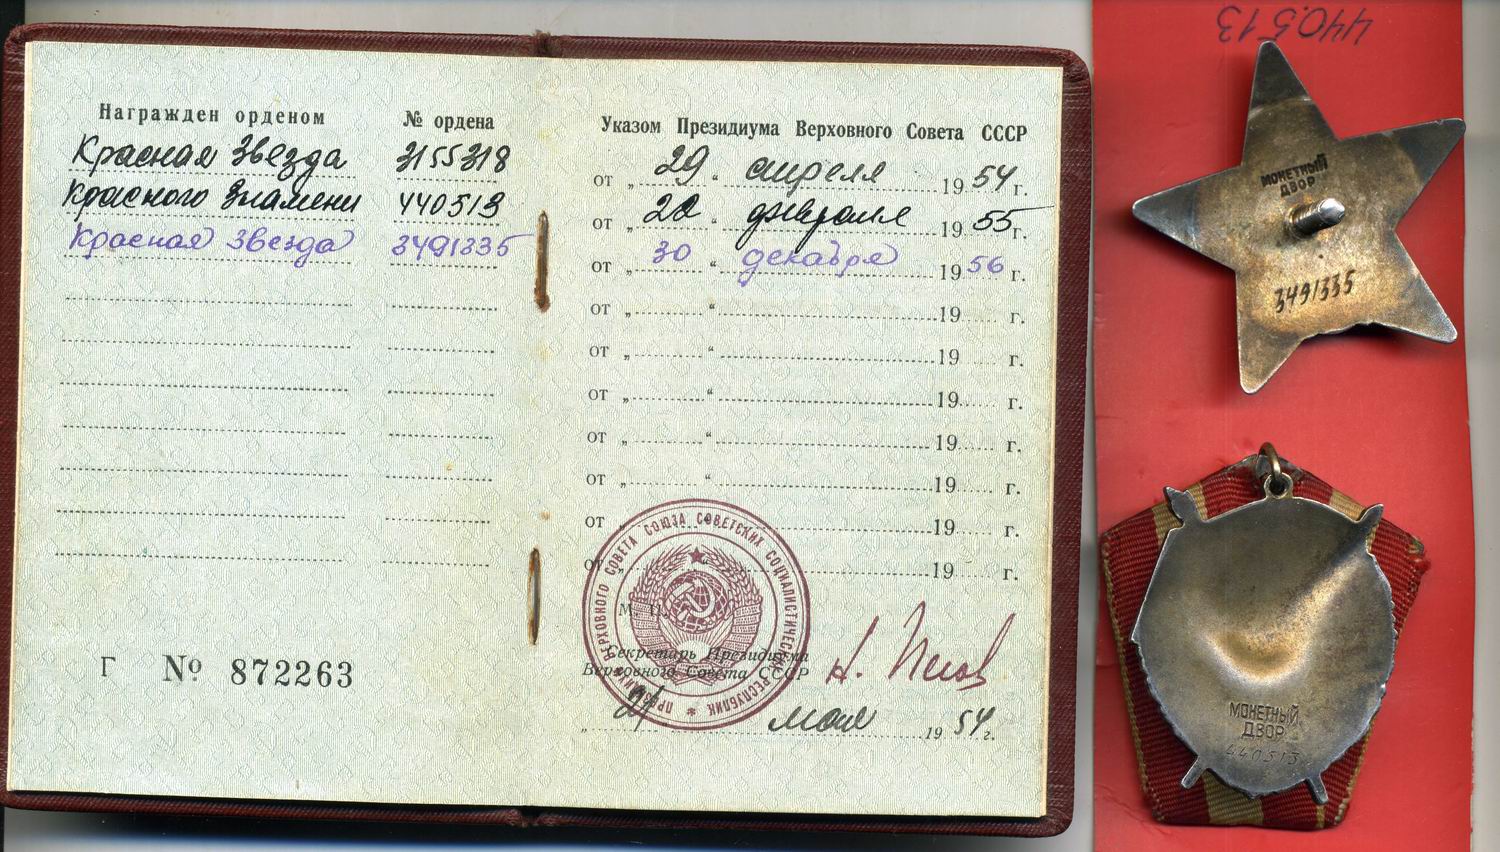 Награжден орденом № ордена
Красная Звезда 3155318
Красного Знамени 440513
Красная Звезда 3491335
Г № 872263
Указом Президиума Верховного Совета СССР
от „ 29 “ апреля 1954 г.
от „ 22 “ февраля 1955 г.
от „ 30 “ декабря 1956 г.
от „ “ 19 г.
от „ “ 19 г.
от „ “ 19 г.
от „ “ 19 г.
от „ “ 19 г.
от „ “ 19 г.
от „ “ 19 г.
М. П.
Секретарь Президиума
Верховного Совета СССР
Н. Пегов
„ 21 мая 1954 г.
ПРЕЗИДИУМ ВЕРХОВНОГО СОВЕТА СОЮЗА СОВЕТСКИХ СОЦИАЛИСТИЧЕСКИХ РЕСПУБЛИК *
440513
МОНЕТНЫЙ
ДВОР
3491335
МОНЕТНЫЙ
ДВОР
440513